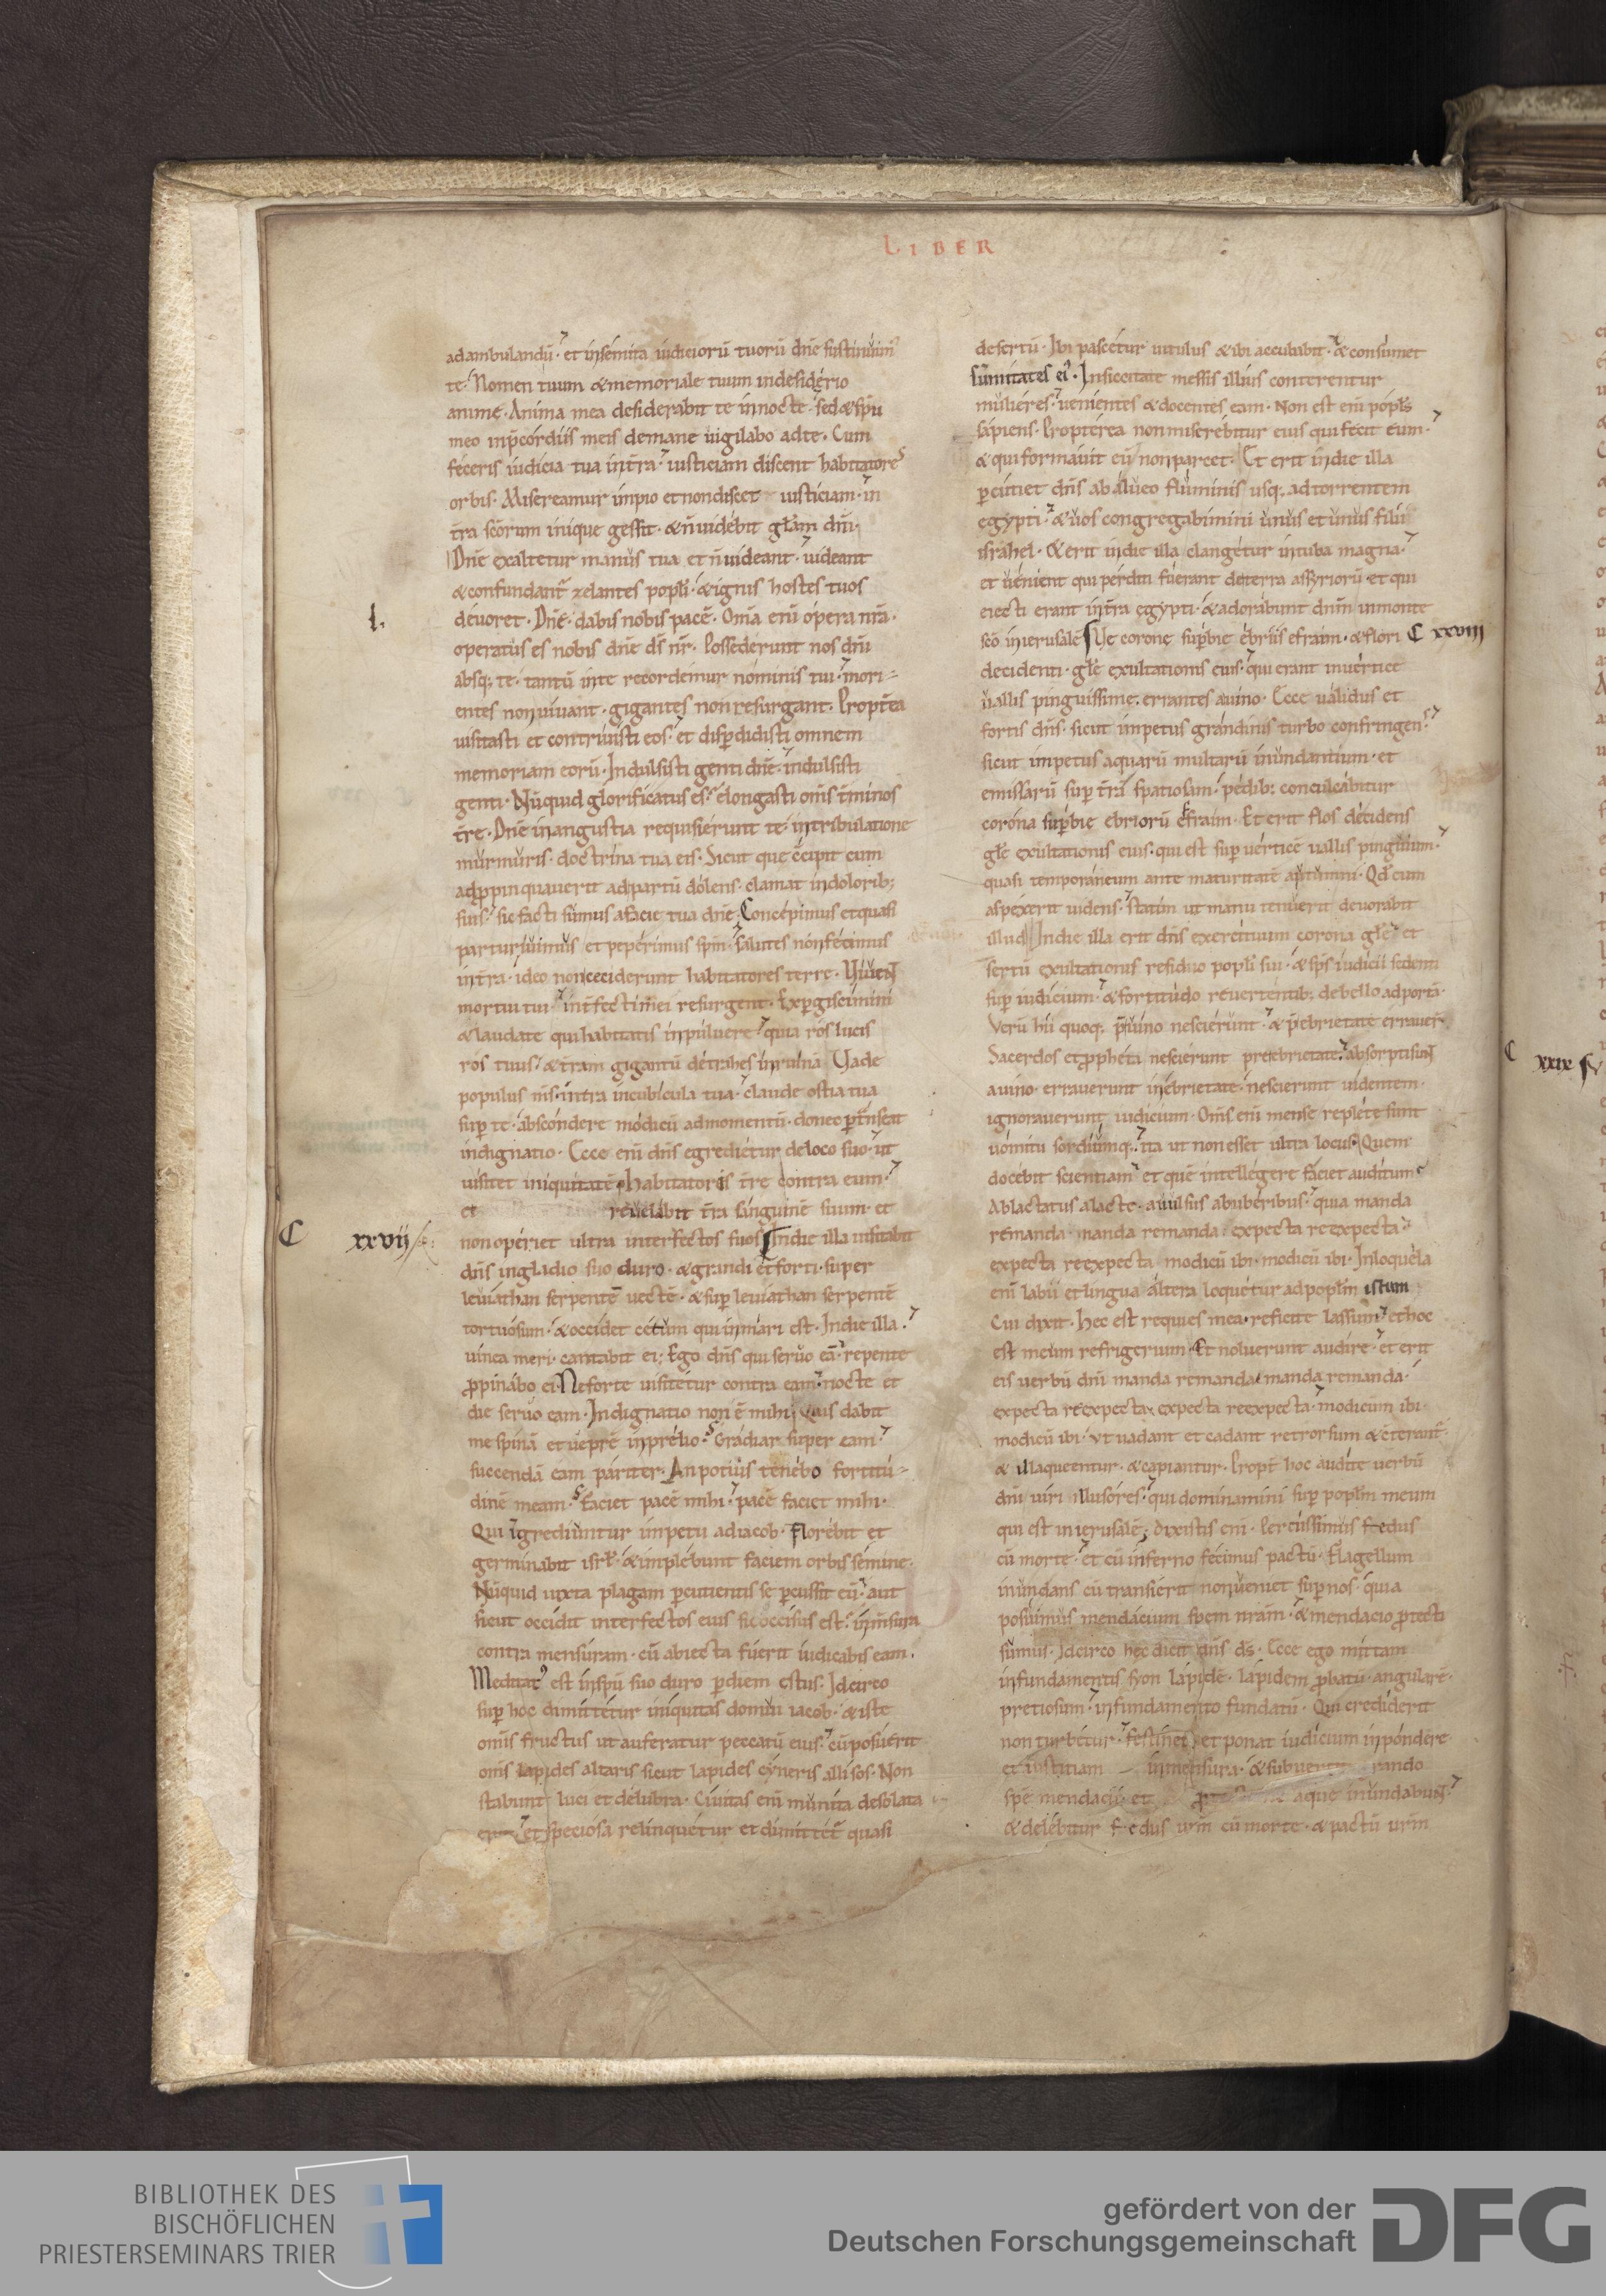 LIBER
ad ambulandū. et in semita iudiciorū tuorū dn̄e sustinuim᷒
te. Nomen tuum & memoriale tuum in desiderio
animę. Anima mea desiderabit te in nocte. sed & sp̄u
meo in p̄cordiis meis de mane uigilabo ad te. Cum
feceris iudicia tua in tr̄a. iusticiam discent habitatores
orbis. Misereamur impio et non discet iusticiam. in
tr̄a sc̄orum inique gessit. & n̄ uidebit gl̄am dn̄i.
Dn̄e exaltetur manus tua et n̄ uideant. uideant
& confundant᷒ zelantes popl̄i. & ignis hostes tuos
l.
deuoret. Dn̄e dabis nobis pacē. Om̄a enī opera nr̄a.
operatus es nobis dn̄e ds̄ nr̄. Possederunt nos dn̄i
absq; te. tantū in te recordemur nominis tui. mori-
entes non uiuant. gigantes non resurgant. Propt̄ea
uisitasti et contriuisti eos. et disp̄didisti omnem
memoriam eorū. Indulsisti genti dn̄e. indulsisti
genti. Nūquid glorificatus es. elongasti om̄s t̄minos
t̄re. Dn̄e in angustia requisierunt te. in tribulatione
murmuris. doctrina tua eis. Sicut que c̄cipit cum
adp̄pinquauerit ad partū dolens. clamat in dolorib;
suis. sic facti sumus a facie tua dn̄e. Concepimus et quasi
parturiuimus et peperimus sp̄m. salutes non fecimus
in tr̄a. ideo non ceciderunt habitatores terre. Uiuent
mortui tui. int̄fecti mei resurgent. Exp̄giscimini
& laudate qui habitatis in puluere. quia ros lucis
ros tuus. & tr̄am gigantū detrahes in ruinā Uade
populus ms̄. intra in cubicula tua. claude ostia tua
sup̄ te. abscondere modicū ad momentū. donec p̄t̄nseat
indignatio. Ecce enī dn̄s egredietur de loco suo. ut
uisitet iniquitatē habitatoris t̄re contra eum.
et reuelabit tr̄a sanguinē suum. et
C xxvij
non operiet ultra interfectos suos In die illa uisitabit
dn̄s in gladio suo duro. & grandi et forti. super
leuiathan serpentē uectē. & sup̄ leuiathan serpentē
tortuosum. & occidet cetum qui in mari est. In die illa.
uinea meri. cantabit ei; Ego dn̄s qui seruo eā. repente
p̄pinabo ei. Ne forte uisitetur contra eam. nocte et
die seruo eam. Indignatio non ē mihi. Quis dabit
me spinā et ueprē in prelio. Gradiar super eam.
succendā eam pariter. An potius tenebo fortitu-
dinē meam. Faciet pacē mihi. pacē faciet mihi.
Qui īgrediuntur impetu ad iacob. Florebit et
germinabit isrl̄. & implebunt faciem orbis semine.
Nūquid iuxta plagam p̄cutientis se p̄cussit eū. aut
sicut occidit interfectos eius sic occisus est. in m̄sura
contra mensuram. cū abiecta fuerit iudicabis eam.
Meditat᷒ est in sp̄u suo duro p̄ diem estus. Idcirco
sup̄ hoc dimittetur iniquitas domui iacob. & iste
om̄is fructus ut auferatur peccatū eius. cū posuerit
om̄s lapides altaris sicut lapides cyneris allisos. Non
stabunt luci et delubra. Ciuitas enī munita desolata
et speciosa relinquetur et dimittet᷒ quasi
desertū. Ibi pascetur uitulus & ibi accubabit. & consumet
summitates ei᷒. In siccitate messis illius conterentur
mulieres. uenientes & docentes eam. Non est enī popl̄s
sapiens. Propterea non miserebitur eius qui fecit eum.
& qui formauit eū non parcet. Et erit in die illa
p̄cutiet dn̄s ab alueo fluminis usq; ad torrentem
egypti. & uos congregabimini unus et unus filii
israhel. & erit in die illa clangetur in tuba magna.
et uenient qui perditi fuerant de terra assyriorū et qui
eiecti erant in tr̄a egypti. & adorabunt dnm̄ in monte
sc̄o in ierusalē Ue corone sup̄bie ebriis efraim. & flori C xxviij
decidenti. gl̄e exultationis eius. qui erant in uertice
uallis pinguissime. errantes a uino. Ecce ualidus et
fortis dn̄s. sicut impetus grandinis turbo confringens.
sicut impetus aquarū multarū inundantium. et
emissarū sup̄ tr̄ā spatiosam. pedib; conculcabitur
corona sup̄bie ebriorū efraim. Et erit flos decidens
gl̄e exultationis eius. qui est sup̄ uerticē uallis pinguium.
quasi temporaneum ante maturitatē autumni. Qd̄ cum
aspexerit uidens. statim ut manu tenuerit deuorabit
illud In die illa erit dn̄s exercituum corona gl̄e et
sertū exultationis residuo popl̄i sui. & sp̄s iudicii sedenti
sup̄ iudicium. & fortitudo reuertentib; de bello ad portā.
Verū hii quoq; p̄ uino nescierunt. & p̄ ebrietate errauer̄.
Sacerdos et p̄pheta nescierunt pre ebrietate. absorpti sunt
a uino. errauerunt in ebrietate. nescierunt uidentem.
ignorauerunt iudicium. Om̄s enī mense replete sunt
uomitu sordiumq;. ita ut non esset ultra locus. Quem
docebit scientiam et quē intellegere faciet auditum
Ablactatus a lacte. auulsus ab uberibus. quia manda
remanda. manda remanda. expecta reexpecta.
expecta reexpecta modicū ibi. modicū ibi. In loquela
enī labii et lingua altera loquetur ad popl̄m istum
Cui dixit. hec est requies mea. reficite lassum. et hoc
est meum refrigerium. Et noluerunt audire. et erit
eis uerbū dn̄i manda remanda. manda remanda.
expecta reexpecta. expecta reexpecta. modicum ibi.
modicū ibi. ut uadant et cadant retrorsum & c̄terant᷒
& illaqueentur. & capiantur. Propt̄ hoc audite uerbū
dn̄i uiri illusores. qui dominamini sup̄ popl̄m meum
qui est in ierusalē; dixistis enī. Percussimus fedus
cū morte. et cū inferno fecimus pactū. Flagellum
inundans cū transierit non ueniet sup̄ nos. quia
posuimus mendacium spem nr̄am. & mendacio p̄tecti
sumus. Idcirco hec dicit dn̄s ds̄. Ecce ego mittam
in fundamentis syon lapidē. lapidem p̄batū. angularē.
pretiosum. in fundamento fundatū. Qui crediderit
non turbetur. festinet et ponat iudicium in pondere
et iustitiam in mensura. & rando
spē mendacii et aque inundabunt.
& delebitur fedus ur̄m cū morte. & pactū ur̄m
C xxix
BIBLIOTHEK DES
BISCHÖFLICHEN
PRIESTERSEMINARS TRIER
gefördert von der
Deutschen Forschungsgemeinschaft
DFG